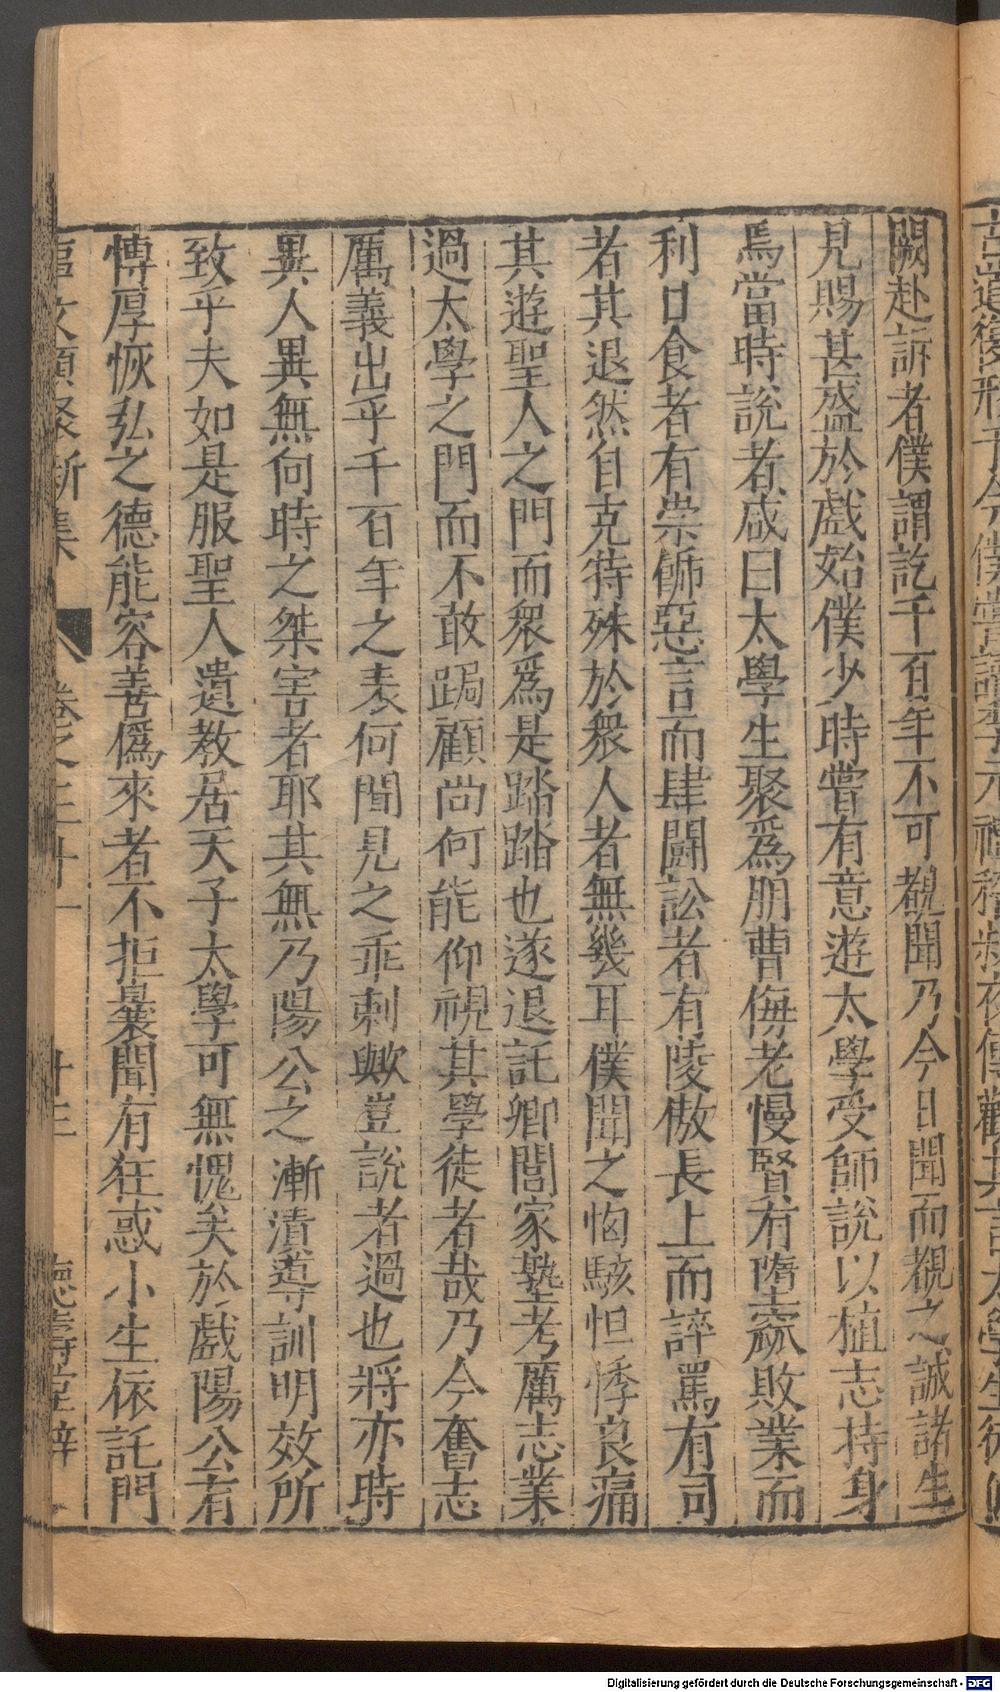 闕赴訴者僕謂訖千百年不可覩聞乃今日聞而覩之誠諸生
見賜甚盛於戲始僕少時嘗有意遊太學受師說以植志持身
焉當時說者咸曰太學生聚爲朋曹侮老慢賢有墮窳敗業而
利口食者有崇飾惡言而肆鬪訟者有陵傲長上而誶罵有司
者其退然自克特殊於衆人者無幾耳僕聞之恟駭怛悸良痛
其遊聖人之門而衆爲是踏踏也遂退託鄉閭家塾考厲志業
過太學之門而不敢跼顧尚何能仰視其學徒者哉乃今奮志
厲義出乎千百年之表何聞見之乖剌歟豈說者過也將亦時
異人異無向時之桀害者耶其無乃陽公之漸漬導訓明效所
致乎夫如是服聖人遺教居天子太學可無愧矣於戲陽公有
愽厚恢弘之德能容善僞來者不拒曩聞有狂惑小生依託門
事文類聚新集 卷之三十一 十三 德壽堂梓
Digitalisierung gefördert durch die Deutsche Forschungsgemeinschaft - DFG